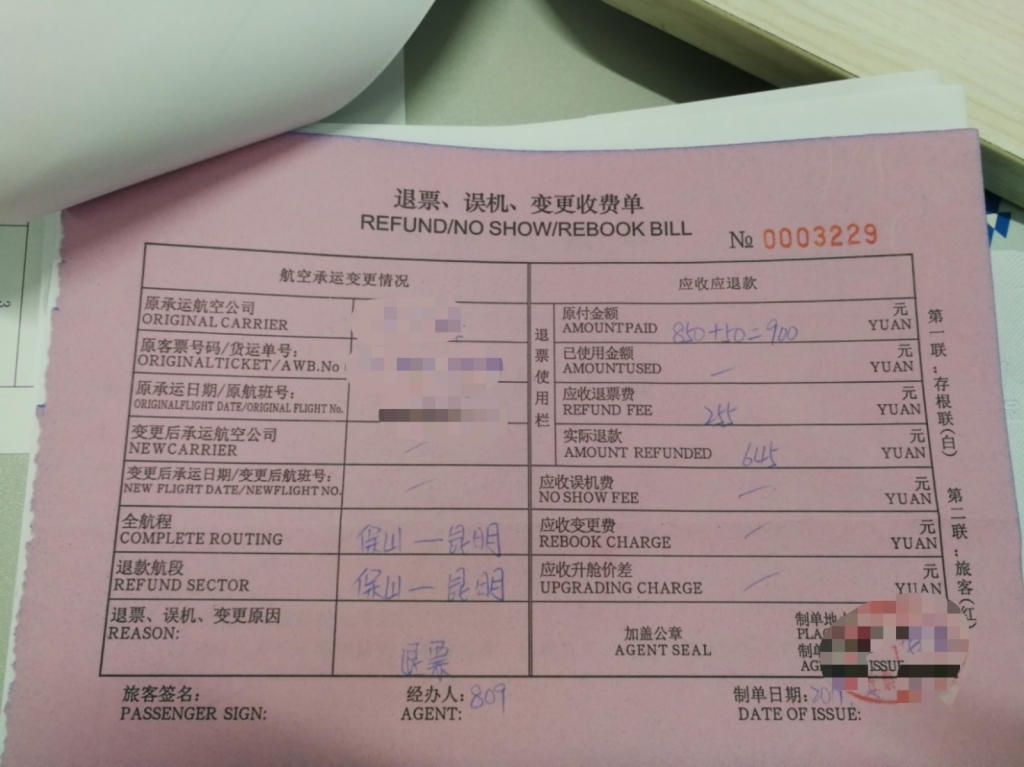 退票、误机、变更收费单
REFUND/NO SHOW/REBOOK BILL
№ 0003229
航空承运变更情况
应收应退款
原承运航空公司
ORIGINAL CARRIER
原客票号码/货运单号:
ORIGINALTICKET/AWB.No
原承运日期/原航班号:
ORIGINALFLIGHT DATE/ORIGINAL FLIGHT No.
变更后承运航空公司
NEWCARRIER
变更后承运日期/变更后航班号:
NEW FLIGHT DATE/NEWFLIGHT NO.
全航程
COMPLETE ROUTING
保山—昆明
退款航段
REFUND SECTOR
保山—昆明
退票、误机、变更原因
REASON:
退票
退票使用栏
原付金额 元
AMOUNTPAID 850+50=900 YUAN
已使用金额 元
AMOUNTUSED YUAN
应收退票费 元
REFUND FEE 255 YUAN
实际退款 元
AMOUNT REFUNDED 645 YUAN
应收误机费 元
NO SHOW FEE YUAN
应收变更费 元
REBOOK CHARGE YUAN
应收升舱价差 元
UPGRADING CHARGE YUAN
加盖公章
AGENT SEAL
制单地
ISSUE
第一联:存根联(白)
第二联:旅客(红)
旅客签名:
PASSENGER SIGN:
经办人: 809
AGENT:
制单日期:
DATE OF ISSUE: